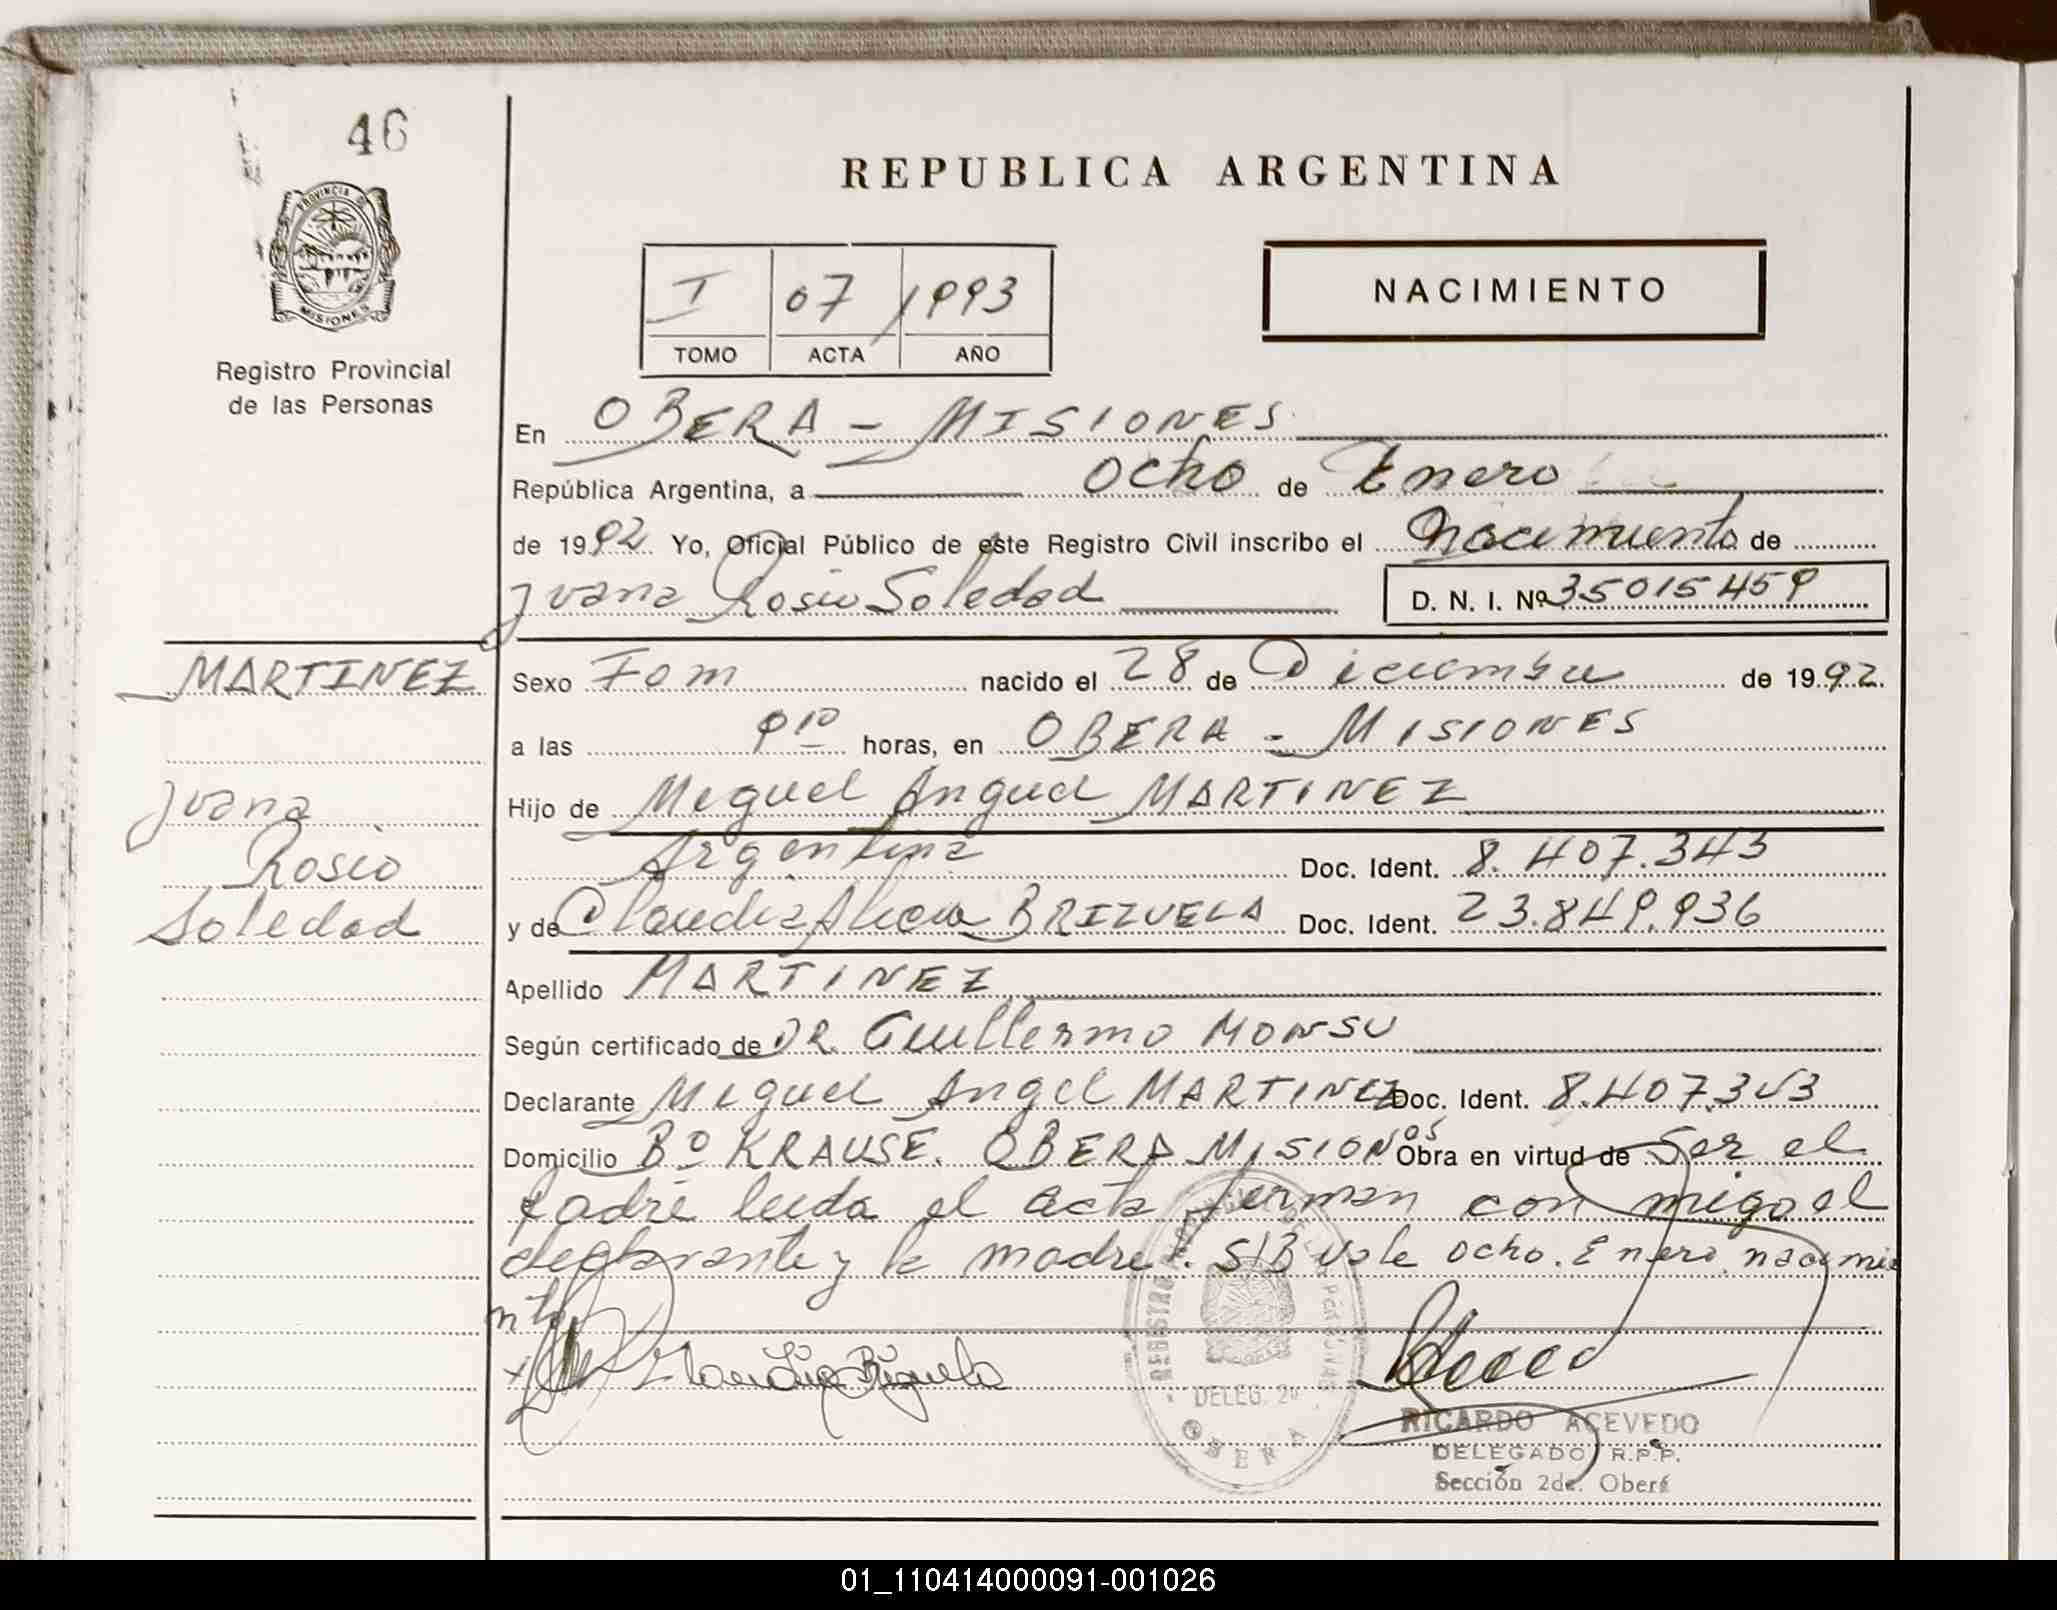 46
PROVINCIA D
MISIONES
Registro Provincial
de las Personas
REPUBLICA ARGENTINA
I 07 1993
TOMO ACTA AÑO
NACIMIENTO
En OBERA - MISIONES
República Argentina, a ocho de Enero
de 1992 Yo, Oficial Público de este Registro Civil inscribo el Nacimiento de
Juana Rosio Soledad D. N. I. Nº 35015459
MARTINEZ
Juana
Rosio
Soledad
Sexo Fem nacido el 28 de Diciembre de 1992.
a las 9 10 horas, en OBERA - MISIONES
Hijo de Miguel Angel MARTINEZ
Argentina Doc. Ident. 8.407.343
y de Claudia Alicia BRIZUELA Doc. Ident. 23.849.936
Apellido MARTINEZ
Según certificado de DR. Guillermo MONSU
Declarante Miguel Angel MARTINEZ Doc. Ident. 8.407.343
Domicilio Bº KRAUSE. OBERA MISIONES Obra en virtud de ser el
padre leida el acta firman con migo el
declarante y la madre. S/B vale ocho. Enero. nacimie
nto
Claudia Brizuela
REGISTRO PROVINCIAL DE LAS PERSONAS
DELEG. 2a
OBERA
RICARDO ACEVEDO
DELEGADO R.P.P.
Sección 2da. Oberá
01_110414000091-001026